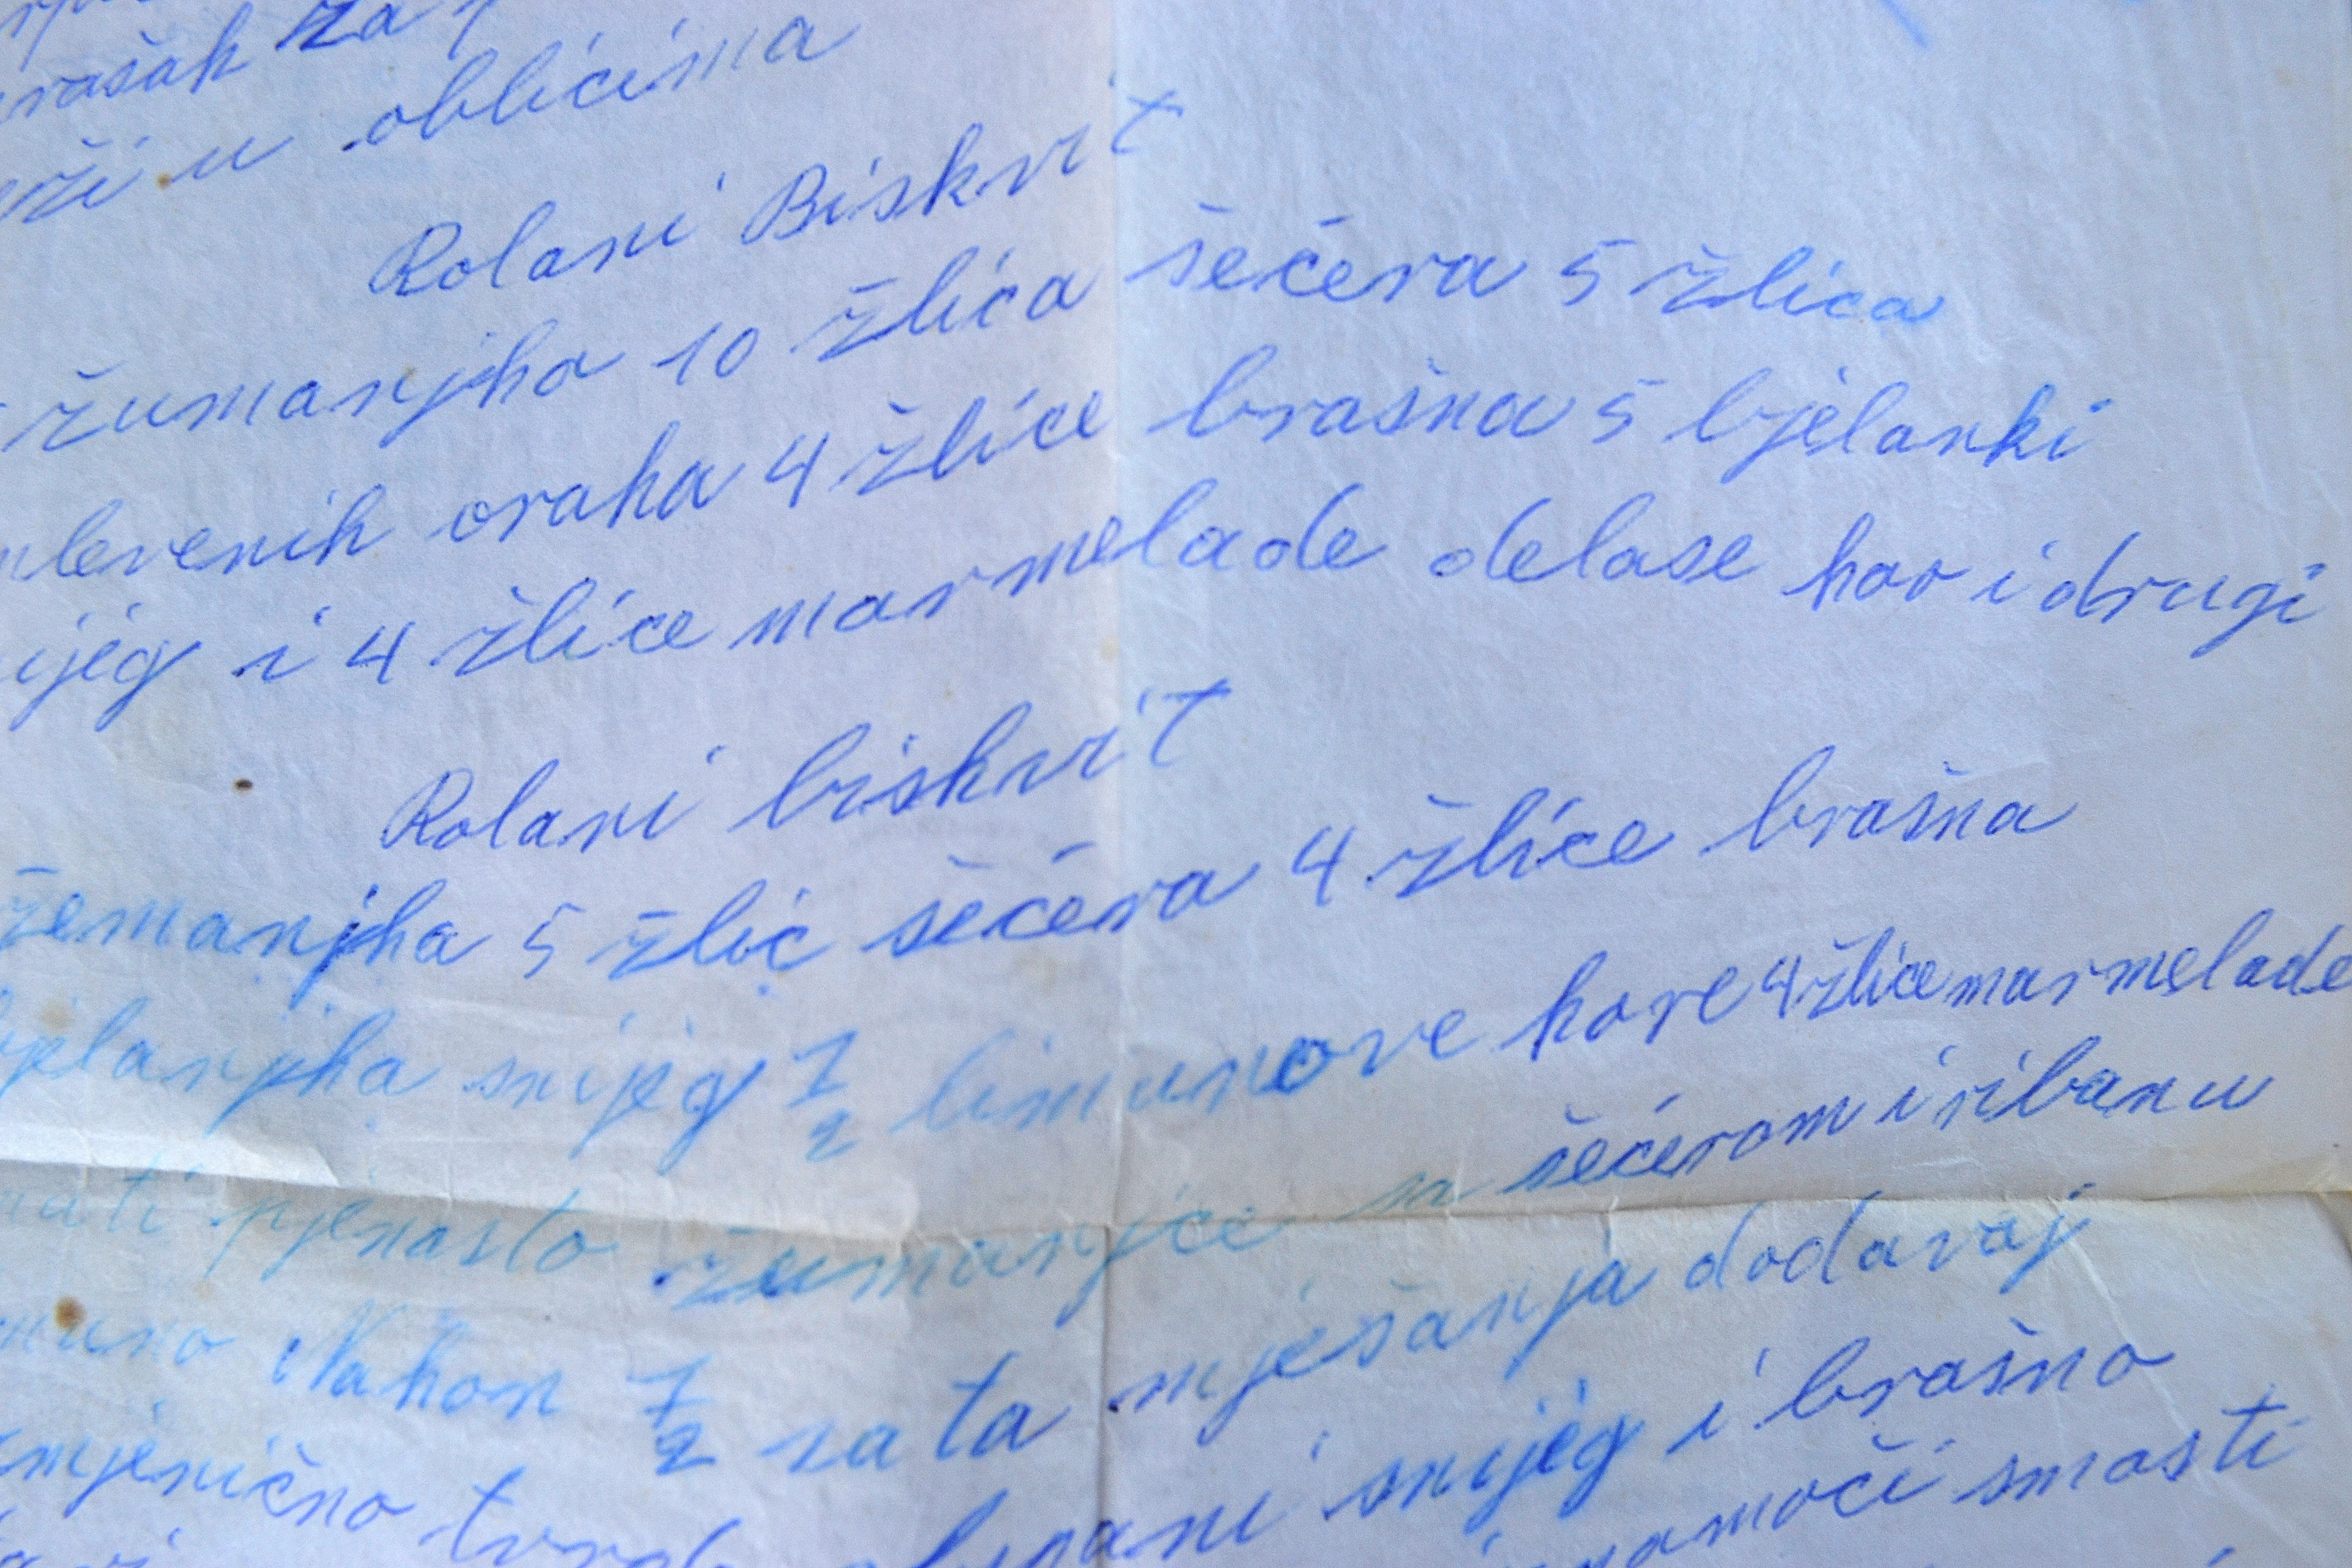 za
u oblicima
Rolani Biskvit
žumanjka 10 žlica šećera 5 žlica
mlevenih oraha 4 žlice brašna 5 bjelanki
i 4 žlice marmelade delase kao i drugi
Rolani biskvit
žemanjka 5 žlic šećera 4 žlice brašna
bjelanjka snijeg 1/2 limunove kore 4 žlice marmelade
pjenasto žumanjce sa šećerom i ribanu
Nakon 1/2 sata mješanja dodavaj
snijeg i brašno
namoči smasti